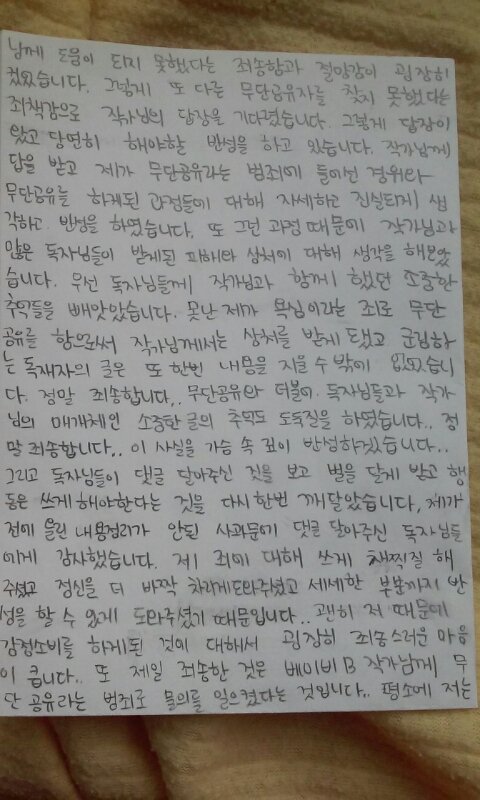 님께 도움이 되지 못했다는 죄송함과 절망감이 굉장히
컸었습니다. 그렇게 또 다른 무단공유자를 찾지 못했다는
죄책감으로 작가님의 답장을 기다렸습니다. 그렇게 답장이
왔고 당연히 해야할 반성을 하고 있습니다. 작가님께
답을 받고 제가 무단공유라는 범죄에 들어선 경위와
무단공유를 하게된 과정들에 대해 자세하고 진실되게 생
각하고 반성을 하였습니다. 또 그런 과정 때문에 작가님과
많은 독자님들이 받게된 피해와 상처에 대해 생각을 해보았
습니다. 우선 독자님들께 작가님과 함께 했던 소중한
추억들을 빼앗았습니다. 못난 제가 욕심이라는 죄로 무단
공유를 함으로써 작가님께서는 상처를 받게 됐고 군림하
는 독재자의 글은 또 한번 내용을 지울 수 밖에 없었습니
다. 정말 죄송합니다.. 무단공유와 더불어 독자님들과 작가
님의 매개체인 소중한 글의 추억도 도둑질을 하였습니다.. 정
말 죄송합니다.. 이 사실을 가슴 속 깊이 반성하겠습니다..
그리고 독자님들이 댓글 달아주신 것을 보고 벌을 달게 받고 행
동은 쓰게 해야한다는 것을 다시 한번 깨달았습니다, 제가
전에 올린 내용정리가 안된 사과문에 댓글 달아주신 독자님들
에게 감사했습니다. 제 죄에 대해 쓰게 채찍질 해
주셨고 정신을 더 바짝 차리게 도와주셨고 세세한 부분까지 반
성을 할 수 있게 도와주셨기 때문입니다.. 괜히 저 때문에
감정소비를 하게된 것에 대해서 굉장히 죄송스러운 마음
이 큽니다.. 또 제일 죄송한 것은 베이비B 작가님께 무
단 공유라는 범죄로 물의를 일으켰다는 것입니다.. 평소에 저는